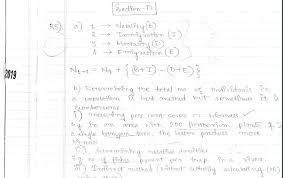 Section-D
2019
A5) a) 1 → Natality (B)
2 → Immigration (I)
3 → Mortality (D)
4 → Emigration (E)
Nt+1 = Nt + {(B+I) - (D+E)}
b) Determining the total no of individuals in
a population is best method but sometimes it is
i) measuring per cent cover or biomass
eg in an area with 200 plants if
a single banyan tree, the latter produce more
biomass
ii) determining relative densities
Eg no of fishes present per trap in a river.
iii) Indirect method (without actually calculating